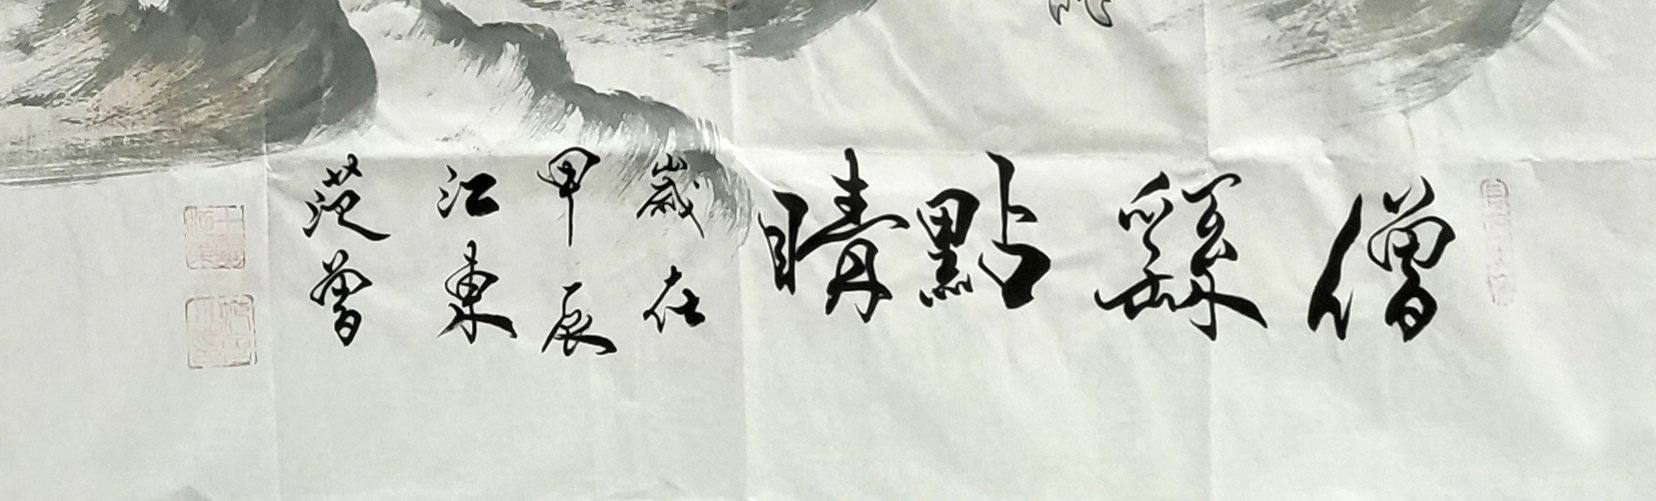 僧繇點睛
歲在
甲辰
江東
范曾